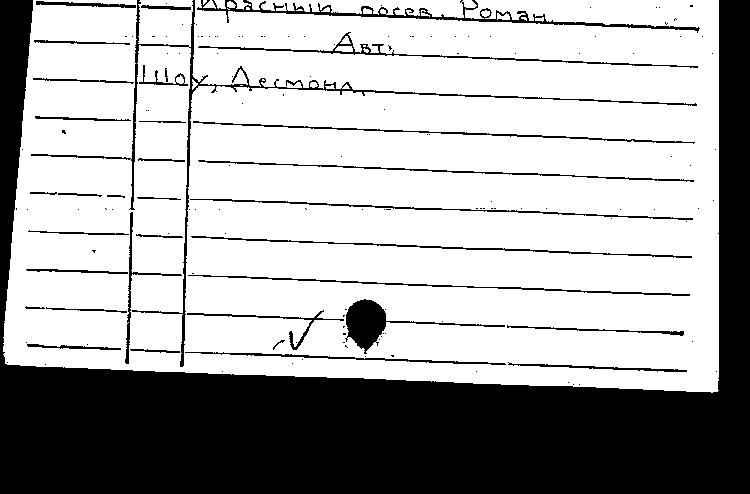 Красный посев. Роман.
Авт:
Шоу, Десмонд.